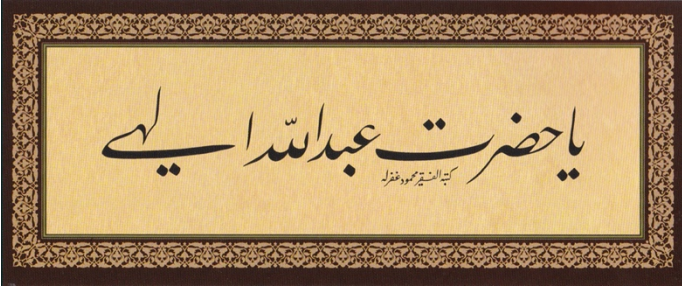 يا حضرت عبد الله الهى
كتبه الفقير محمود غفرله